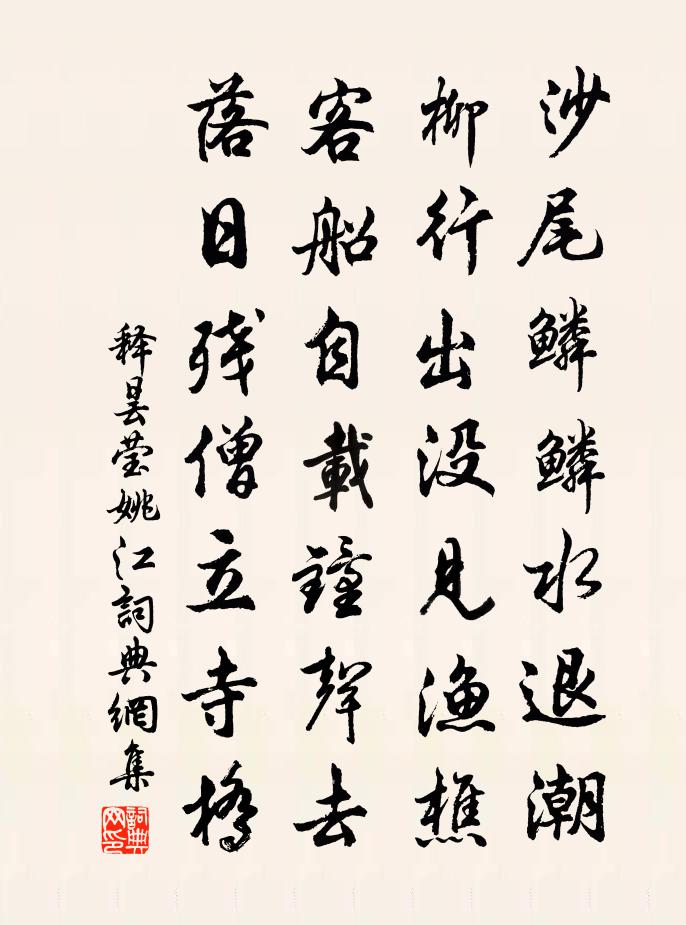 沙尾鱗鱗水退潮
柳行出没見漁樵
客船自載鐘聲去
落日殘僧立寺橋
释昙莹姚江詞典網集
詞典网印